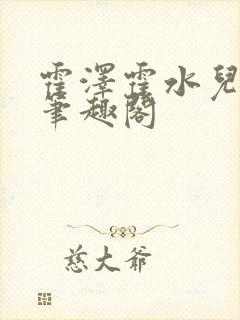 霍澤霍水兒
筆趣閣
慈大爺